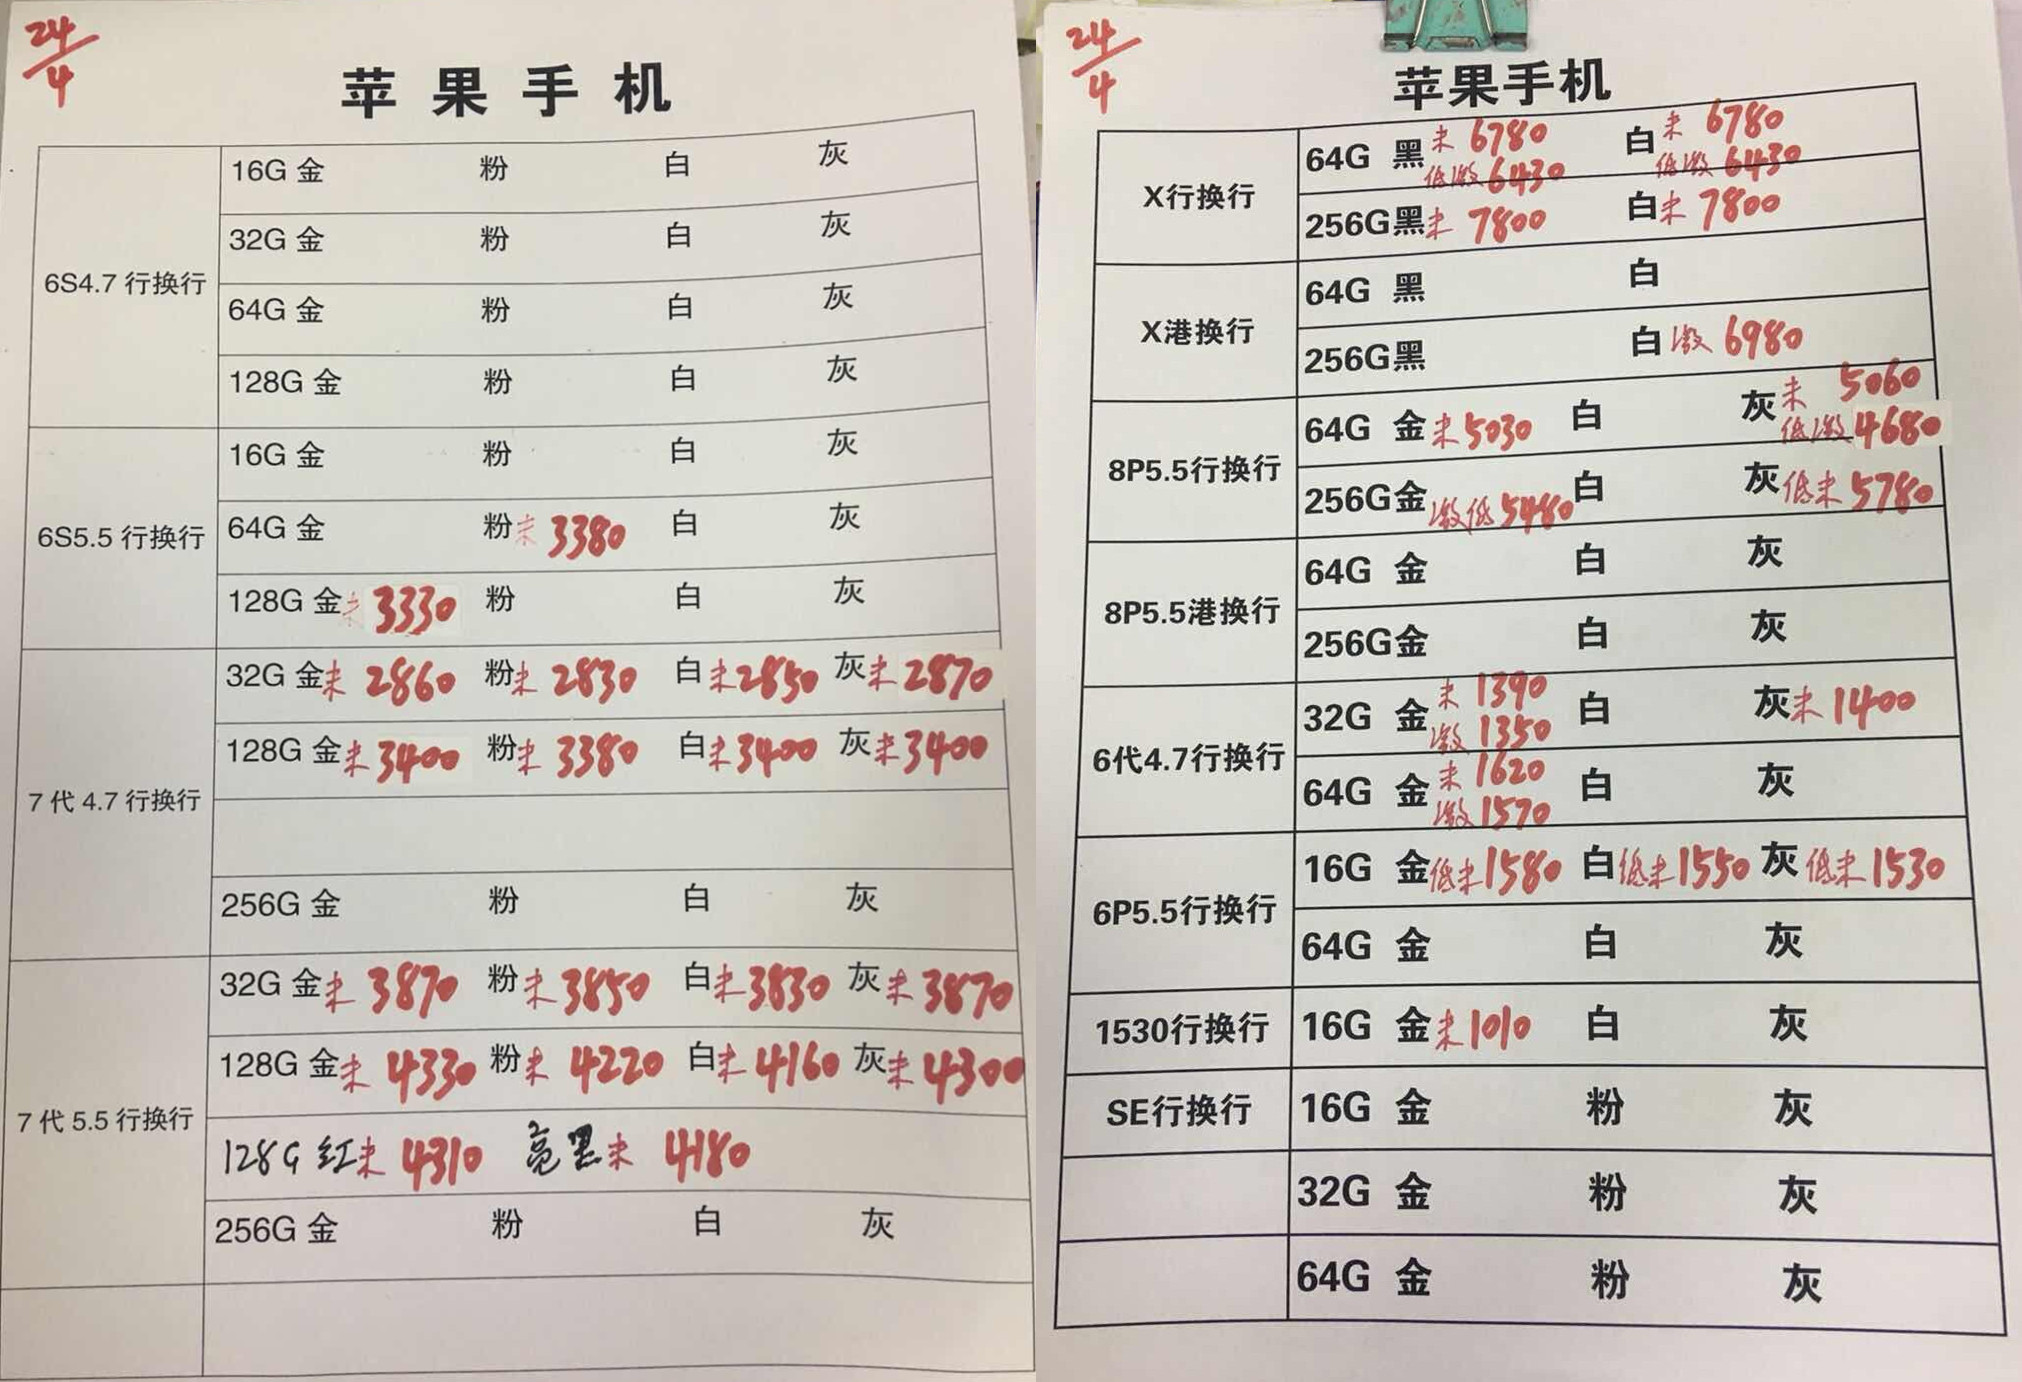 24/4
苹果手机
6S4.7行换行
16G 金 粉 白 灰
32G 金 粉 白 灰
64G 金 粉 白 灰
128G 金 粉 白 灰
6S5.5行换行
16G 金 粉 白 灰
64G 金 粉未3380 白 灰
128G 金未3330 粉 白 灰
7代4.7行换行
32G 金未2860 粉未2830 白未2850 灰未2870
128G 金未3400 粉未3380 白未3400 灰未3400
256G 金 粉 白 灰
7代5.5行换行
32G 金未3870 粉未3850 白未3830 灰未3870
128G 金未4330 粉未4220 白未4160 灰未4300
128G 红未4310 亮黑未4180
256G 金 粉 白 灰
24/4
苹果手机
X行换行
64G 黑未6780 白未6780
低激6430 低激6430
256G黑未7800 白未7800
X港换行
64G 黑 白
256G黑 白激6980
8P5.5行换行
64G 金未5030 白 灰未5060
低激4680
256G金激低5480 白 灰低未5780
8P5.5港换行
64G 金 白 灰
256G金 白 灰
6代4.7行换行
32G 金未1390 白 灰未1400
激1350
64G 金未1620 白 灰
激1570
6P5.5行换行
16G 金低未1580 白低未1550 灰低未1530
64G 金 白 灰
1530行换行
16G 金未1010 白 灰
SE行换行
16G 金 粉 灰
32G 金 粉 灰
64G 金 粉 灰